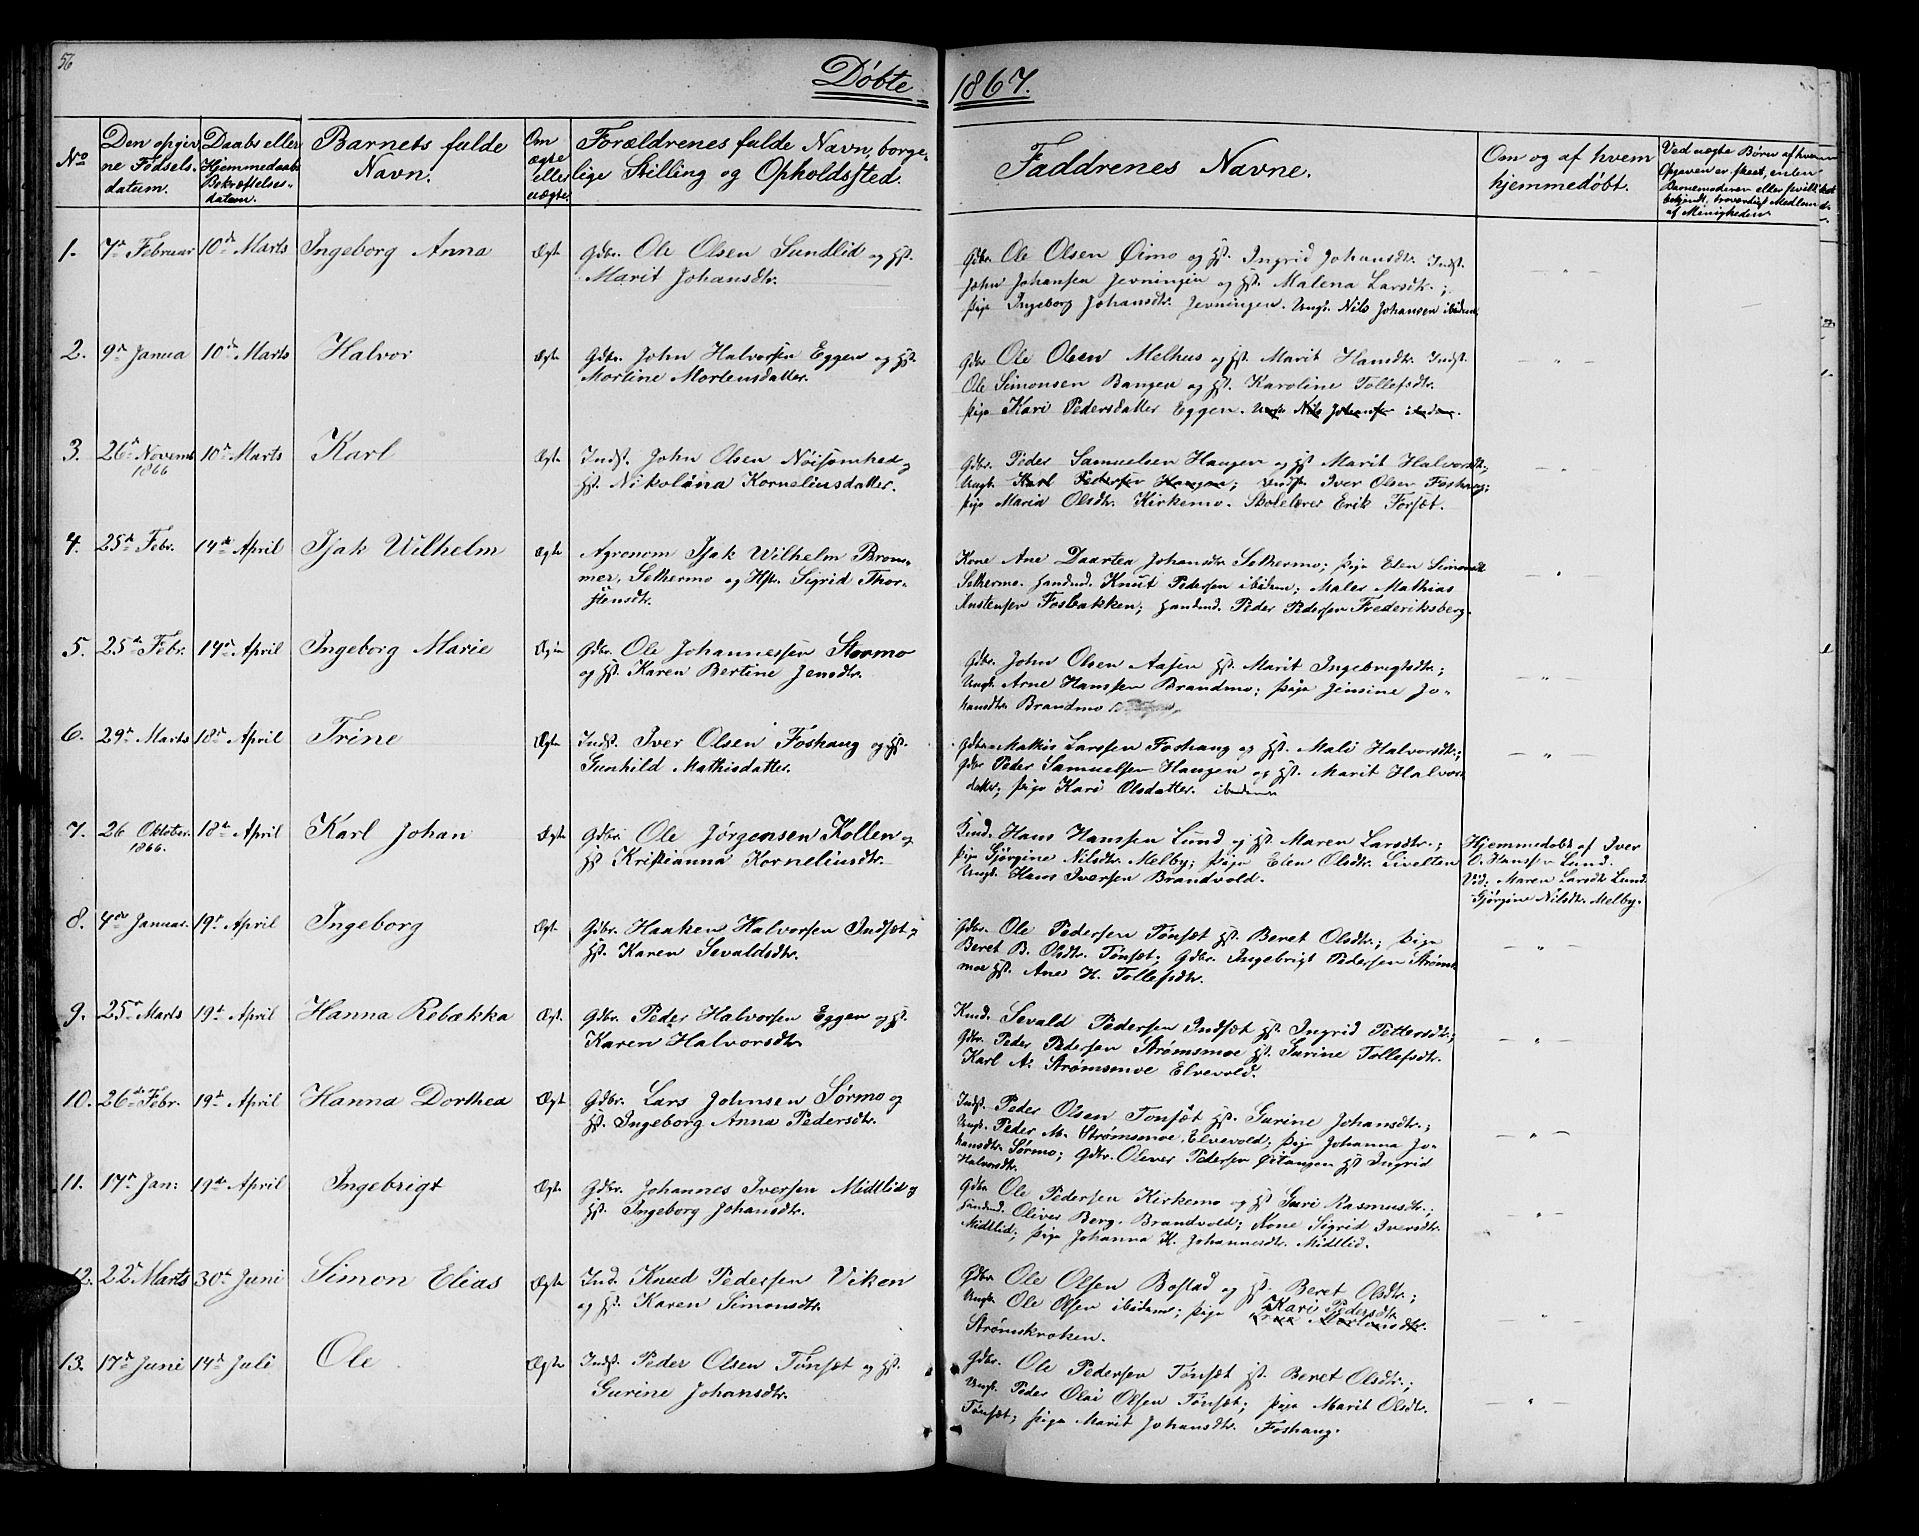 56
Døbte 1867.
No
Den opgiv-
ne Fødsels-
datum.
Daabs eller
Hjemmedaabs
Bekræftelses-
datum.
Barnets fulde
Navn.
Om
ægte
eller
uægte.
Forældrenes fulde Navn, borge-
lige Stilling og Opholdssted.
Faddrenes Navne.
Om og af hvem
hjemmedøbt.
Ved uægte Børn af hvem
Opgaven er skeet, enten
Barnemoderen eller hvilket
bekjendt, troværdigt Medlem
af Menigheden
1. 7de Februar 10de Marts Ingeborg Anna Ægte Gdbr. Ole Olsen Sundlid og Hst.
Marit Johansdtr.
Gdbr. Ole Olsen Øimo og Hst. Ingrid Johansdtr. Indst.
John Johansen Jevningen og Hst. Malena Larsdtr.;
Pige Ingeborg Johansdtr. Jevningen. Ungk. Nils Johansen ibidem
2. 9de Janua 10de Marts Halvor Ægte Gdbr. John Halvorsen Eggen og Hst.
Mortine Mortensdatter.
Gdbr. Ole Olsen Melhus og Hst. Marit Hansdtr. Indst.
Ole Simonsen Bangen og Hst. Karoline Tollefsdtr.
Pige Kari Pedersdatter Eggen. Ungk. Nils Johansen ibidem.
3. 26de Novemb
1866
10de Marts Karl Ægte Indst. John Olsen Nøisomhed og
Hst. Nikolina Korneliusdatter.
Gdbr. Peder Samuelsen Haugen og Hst Marit Halvorsdtr.;
Ungk. Karl Pedersen Haugen; Indst. Iver Olsen Foshaug;
Pige Maria Olsdtr. Kirkemo. Skolelærer Erik Forsæt.
4. 25de Febr. 14de April Isak Wilhelm Ægte Agronom Isak Wilhelm Brom-
mer, Sethermo og Hst. Sigrid Thor-
stensdtr.
Kone Ane Daartea Johansdtr Sethermo; Pige Elen Simonsdtr
Sethermo. Handmd. Knut Pedersen ibidem; Maler Mathias
Austensen Fosbakken; Handmd. Peder Pedersen Frederiksberg.
5. 25de Febr. 14de April Ingeborg Marie Ægte Gdbr. Ole Johannessen Stormo
og Hst. Karen Bertine Jensdtr.
Gdbr. John Olsen Aasen Hst. Marit Ingebrigtsdtr;
Ungk. Arne Hanssen Brandmo; Pige Jensine Jo-
hansdtr. Brandmo
6. 29de Marts 18de April Trine Ægte Indst. Iver Olsen Foshaug og Hst.
Gunhild Mathisdatter.
Gdbr. Mathis Larssen Foshaug og Hst. Mali Halvorsdtr.;
Gdbr Peder Samuelsen Haugen og Hst. Marit Halvors
datter; Pige Kari Olsdatter. ibidem
7. 26 Oktober.
1866.
18de April Karl Johan Ægte Gdbr. Ole Jørgensen Kollen og
Hst Kristianna Korneliusdtr.
Hans Hanssen Lund og Hst. Maren Larsdtr.;
Pige Gjørgine Nilsdtr. Melby; Pige Elen Olsdtr. Livelten
Ungk. Hans Iversen Brandvold.
Hjemmedøbt af Iver
O. Hanssen Lund.
Vid: Maren Larsdtr Lund.
Gjørgine Nilsdtr. Melby.
8. 4de Januar. 19de April Ingeborg Ægte Gdbr. Haaken Halvorsen Indsæt og
Hst. Karen Sevaldsdtr.
Gdbr. Ole Pedersen Tønsæt Hst. Beret Olsdtr.; Pige
Beret B. Olsdtr. Tønsæt; Gdbr. Ingebrigt Pedersen Strøms-
moe Hst. Ane H. Tollefsdtr.
9. 25de Marts 19de April Hanna Rebækka Ægte Gdbr. Peder Halvorsen Eggen og Hst.
Karen Halvorsdtr
Sevald Pedersen Indsæt Hst. Ingrid Pettersdtr;
Gdbr. Peder Pedersen Strømsmoe Hst. Gurine Tollefsdtr.
Karl A. Strømsmoe Elvevold.
10. 26de Febr. 19de April Hanna Dorthea Ægte Gdbr. Lars Johnsen Sørmo og
Hst. Ingeborg Anna Pedersdtr.
Indst. Peder Olsen Tønsæt Hst. Gurine Johansdtr.;
Ungk. Peder M. Strømsmoe Elvevold; Pige Johanna Jo-
hansdtr. Sørmo; Gdbr. Oliver Pedersen Østangen Hst Ingrid
Halvorsdtr.
11. 17de Jan: 19de April Ingebrigt Ægte Gdbr. Johannes Iversen Midtlid og
Hst. Ingeborg Johansdtr.
Gdbr. Ole Pedersen Kirkemo og Hst Guri Rasmusdtr.;
Handmd. Oliver Berg. Brandvold; Kone Sigrid Iversdtr.
Midtlid; Pige Johanna K. Johannesdtr. Midtlid.
12. 22de Marts 30de Juni Simon Elias Ægte Ind. Knud Pedersen Viken
og Hst. Karen Simonsdtr.
Gdbr. Ole Olsen Bostad og Hst. Beret Olsdtr.;
Ungk. Ole Olsen ibidem; Pige Kari Pedersdtr.
Strømskroken.
13. 17de Juni 14de Juli Ole Ægte Indst. Peder Olsen Tønsæt og Hst.
Gurine Johansdtr.
Gdbr. Ole Pedersen Tønsæt Hst. Beret Olsdtr.;
Ungk. Peder Olai Olsen Tønsæt; Pige Marit Olsdtr.
Tønsæt; Pige Marit Johansdtr. Foshaug.